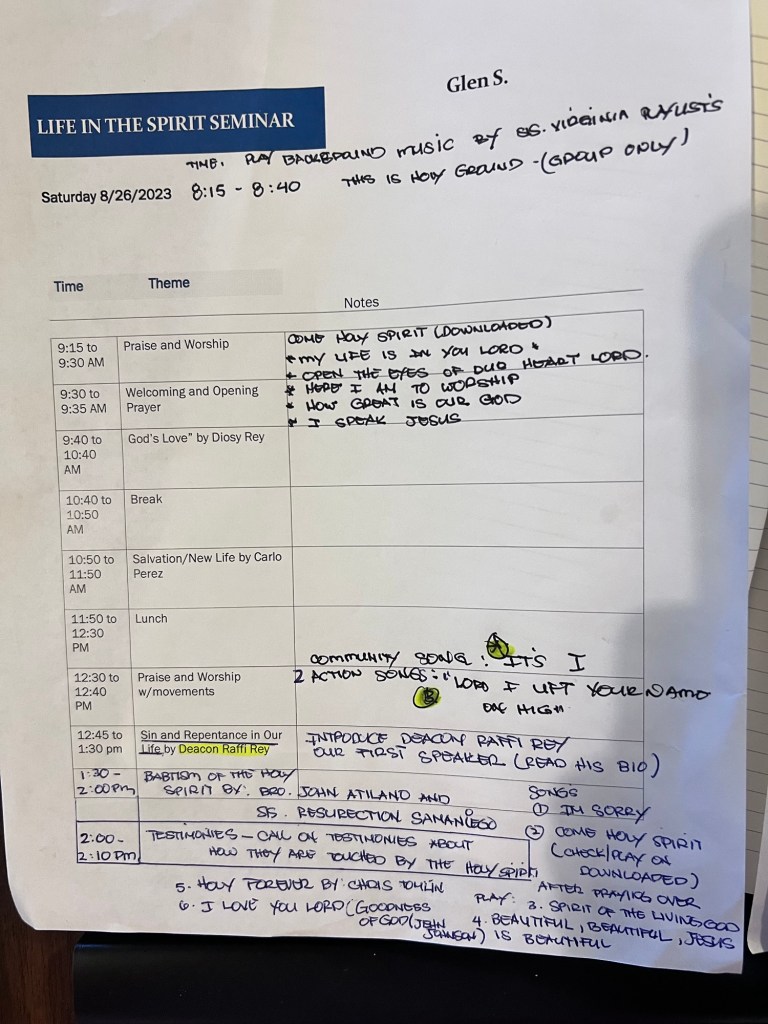 Glen S.
LIFE IN THE SPIRIT SEMINAR
TIME: PLAY BACKGROUND MUSIC BY SIS. VIRGINIA
Saturday 8/26/2023 8:15 - 8:40 THIS IS HOLY GROUND - (GROUP ONLY)
Time Theme
Notes
9:15 to 9:30 AM Praise and Worship COME HOLY SPIRIT (DOWNLOADED)
* MY LIFE IS IN YOU LORD *
* OPEN THE EYES OF OUR HEART LORD.
9:30 to 9:35 AM Welcoming and Opening Prayer * HERE I AM TO WORSHIP
* HOW GREAT IS OUR GOD
* I SPEAK JESUS
9:40 to 10:40 AM God's Love” by Diosy Rey
10:40 to 10:50 AM Break
10:50 to 11:50 AM Salvation/New Life by Carlo Perez
11:50 to 12:30 PM Lunch
COMMUNITY SONG: (A) IT'S I
12:30 to 12:40 PM Praise and Worship w/movements 2 ACTION SONGS: "LORD I LIFT YOUR NAME
(B) ON HIGH"
12:45 to 1:30 pm Sin and Repentance in Our Life by Deacon Raffi Rey INTRODUCE DEACON RAFFI REY
OUR FIRST SPEAKER (READ HIS BIO)
1:30 - 2:00 Pm BABTISM OF THE HOLY
SPIRIT BY: BRO. JOHN ATILANO AND
SIS. RESURECTION SAMANIEGO
SONGS
① IM SORRY
② COME HOLY SPIRIT
(CHECK/PLAY ON
DOWNLOADED)
2:00 - 2:10 Pm TESTIMONIES - CALL ON TESTIMONIES ABOUT
HOW THEY ARE TOUCHED BY THE HOLY SPIRIT
AFTER PRAYING OVER
PLAY: 3. SPIRIT OF THE LIVING GOD
4. BEAUTIFUL, BEAUTIFUL, JESUS
IS BEAUTIFUL
5. HOLY FOREVER BY: CHRIS TOMLIN
6. I LOVE YOU LORD (GOODNESS
OF GOD (JENN
JOHNSON)